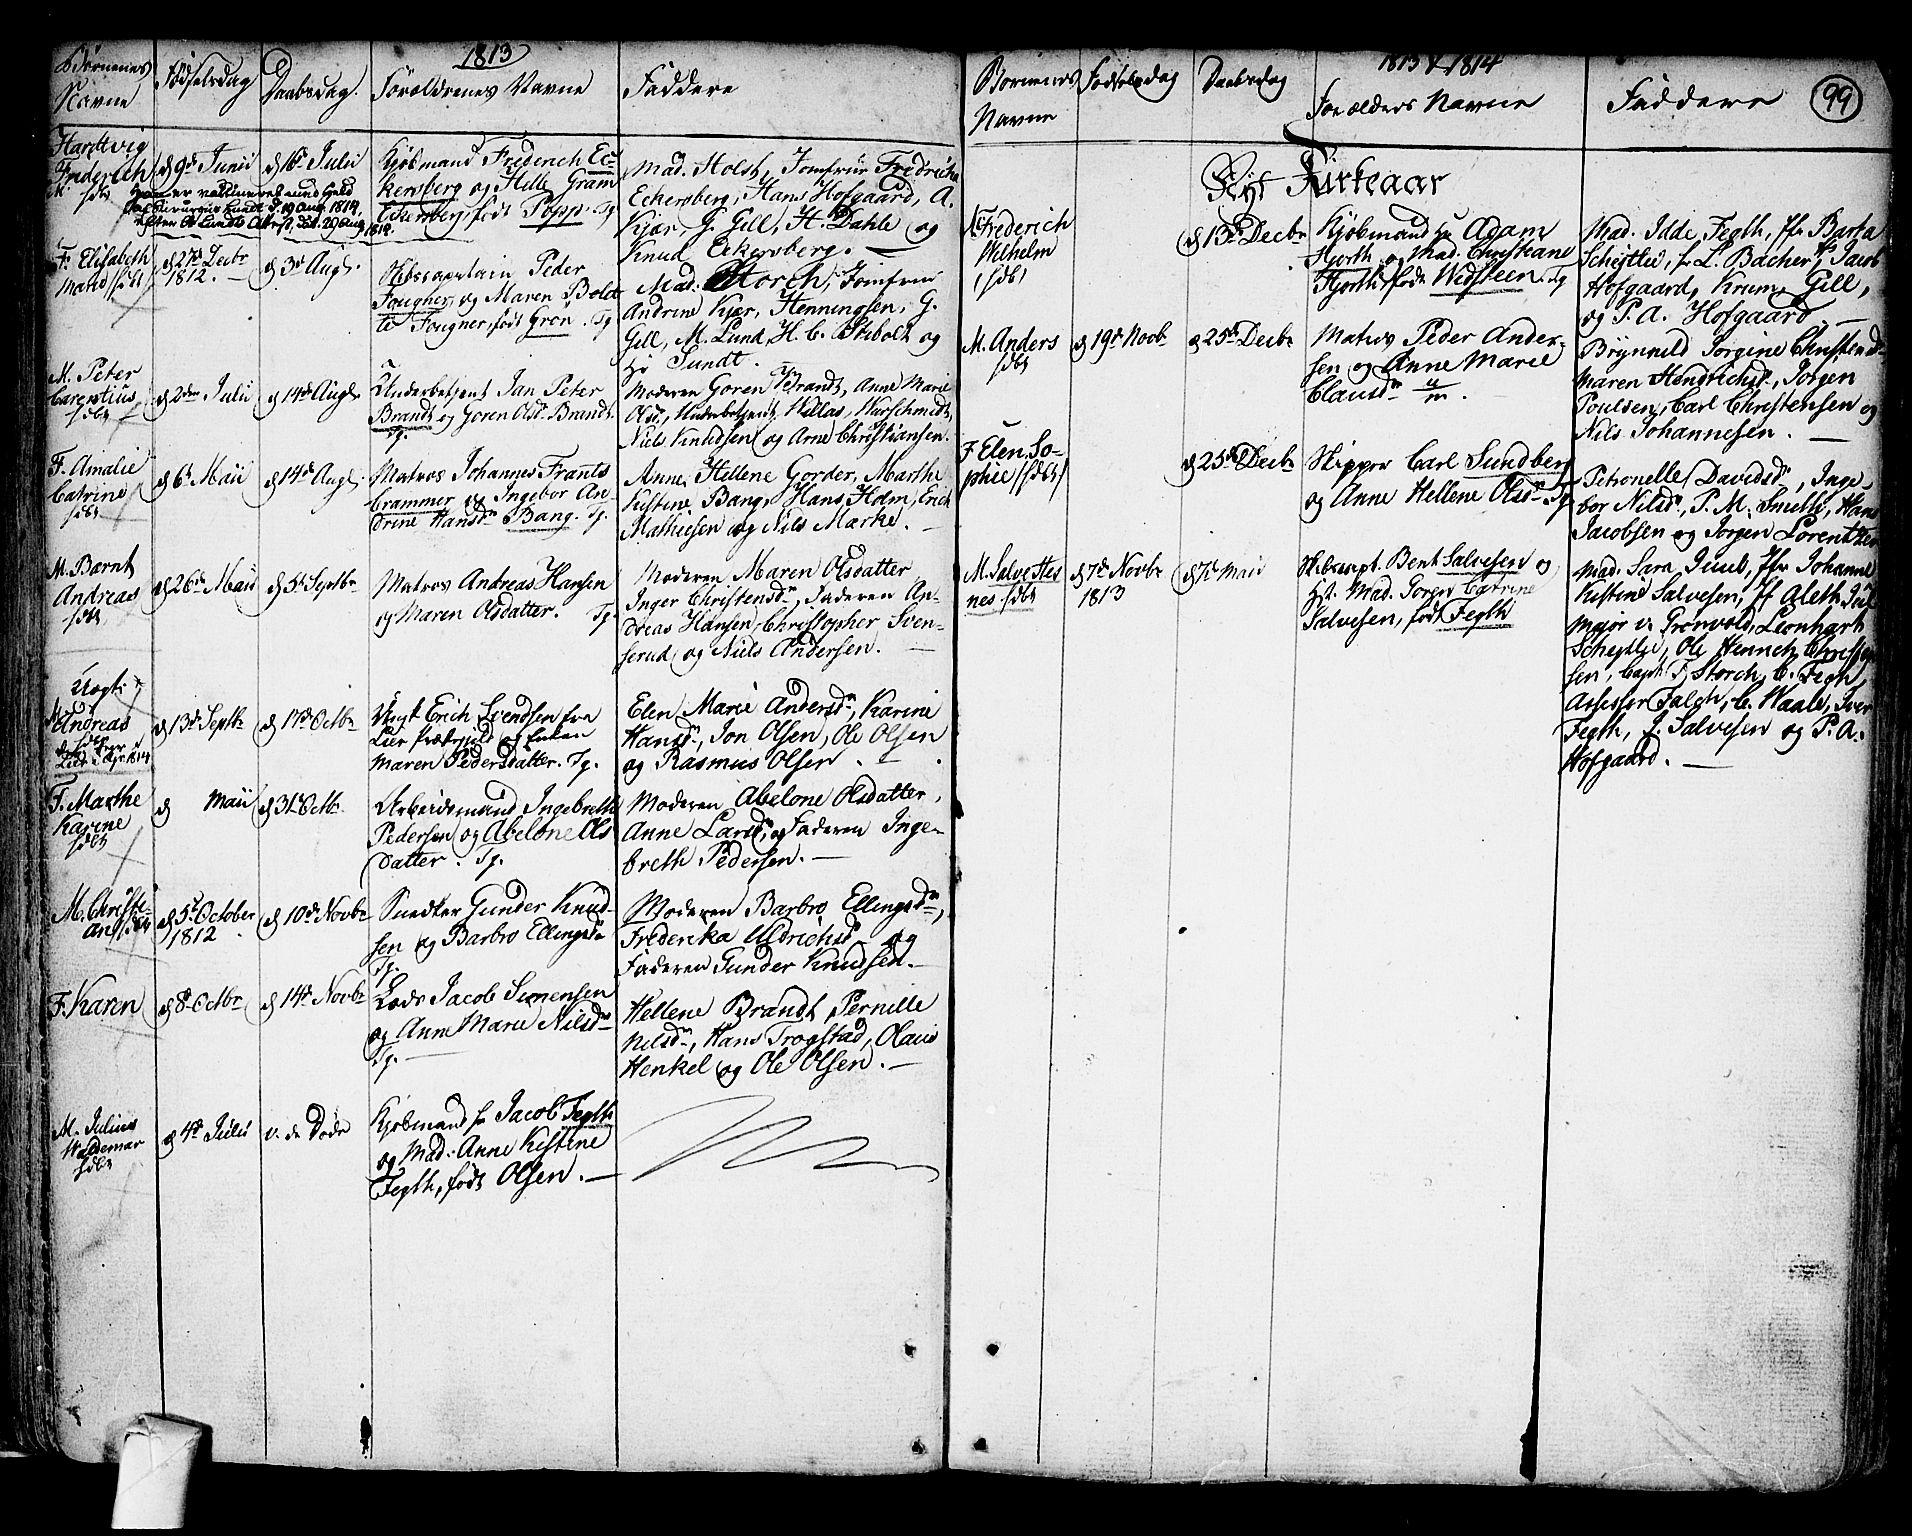 1813
Börnenes
Navne
Födselsdag
Daabsdag.
Foræoldrenes Navne
Faddere
Hardtvig
Friderich
M. /:db:/
d 9de Junii
d 16de Julii
Kjöbmand Frederich Ec-
kersberg og Helle Gram
Eckersberg, födt Popp. Tg.
Mad. Holst, Jomfrue Fredricka
Eckersberg, Hans Hofgaard, A.
Kjær, J. Gill, H. Dahle og
Knud Eckersberg. —
er vaccineret med Held
d. 19 Aug. 1814,
efter Attest, dat. 20 Aug
1812.
F. Elisabeth
Maria /:db:/
d 27de Decbr
1812. —
d 3de Augl.
Peder
Fougner, og Maren Bolet-
te Fougner, födt Grön. Tg.
Mad. Storch, Jomfrue
Andrine Kjær, Henningsen, G.
Gill, M. Lund, H. C. Stibolt og
Hr Sundt. —
M. Peter
Carentius
/:db:/
d 2den Julii
d 14de Augl.
Underbetjent Jan Peter
Brandt og Goren Olsd. Brandt.
Tg.
Moderen Goren Brandt, Anne Marie
Olsd., Underbetjent Willas, Warschmidt,
Niels Knudsen og Arne Christiansen.
F. Amalie
Catrine
/:db:/
d 6te Maii
d 14de Augl.
Matros Johannes Frants
Crammer og Ingebor An-
drine Hansdn Bang. Tg.
Anne Hellene Gorder, Marthe
Kistine Bang, Hans Holm, Erich
Mathiesen og Nils Marke. —
M. Barnt
Andreas
/:db:/
d 26de Maii
d 5te Septbr
Matros Andreas Hansen
og Maren Olsdatter. Tg.
Moderen Maren Olsdatter
Inger Christensdn, Faderen An-
dreas Hansen, Christopher Sven-
serud og Niels Andersen. —
Uægt.
M. Andreas
d 13de Septbr
d 17de Octbr
Ungk. Erich Svendsen fra
Lier Præstegield og Enken
Maren Pedersdatter. Tg.
Elen Marie Andersdn, Karine
Hansdn, Jon Olsen, Ole Olsen
og Rasmus Olsen. —
F. Marthe
Karine
/:db:/
d Maii
d 31te Octbr.
Arbeidsmand Ingebreth
Pedersen og Abelone Ols
datter. Tg.
Moderen Abelone Olsdatter,
Anne Larsdn, og Faderen Inge-
breth Pedersen. —
M. Christi-
an /:db:/
d 5te October
1812
d 10de Novbr
Snedker Gunder Knud-
sen og Barbro Ellingsdn
Tg.
Moderen Barbro Ellingsdn,
Frederika Uldrichsdn og
Faderen Gunder Knudsen. —
F. Karen
d 8de Octbr
d 14de Novbr
Lods Jacob Simensen
og Anne Marie Nilsdn
Tg. —
Hellene Brandt, Pernille
Nilsdn, Hans Trogstad, Olaus
Henkel og Ole Olsen. —
M. Julius
Waldemar
/:db:/
d 4de Julii
v. de Döde
Kjöbmand Hr Jacob Fegth
og Mad. Anne Kistine
Fegth, födt Olsen. —
1813 & 1814
99
Börnenes
Navne
Födselsdag
Daabsdag
Forælders Navne
Faddere
Nyt Kirkeaar
M. Frederich
Wilhelm
/:db:/
d 13de Decbr
Kjöbmand Hr Adam
Hjorth og Mad. Christiane
Hjorth, född Wedsteen. Tg
Mad. Idde Fegth, Jfr Barta
Scheitlie, Hr L. Backer, Hr Jacob
Hofgaard, Krum, Gill,
og P. A. Hofgaard. —
M. Anders
/:db:/
d 19de Novbr
d 25de Decbr
Matros Peder Ander-
sen og Anne Marie
Clausdn
Brynnild Jorgine Christensd.
Maren Hendrichsd., Jorgen
Poulsen, Carl Christensen og
Nils Johannesen. —
F. Elen So-
phie /:db:/
d 25de Decbr
Skipper Carl Sundberg
og Anne Hellene Olsdn Tg
Petronelle Davidsdn, Inge-
bor Nilsdn, P. M. Smith, Hans
Jacobsen og Jorgen Lorentzen
M. Salve Hes
nes /:db:/
d 7de Novbr
1813
d 7de Maii
Skibscapt. Bent Salvesen og
Hst. Mad. Jorgen Catrine
Salvesen, födt Fegth
Mad. Sara Juul, Jfr Johanne
Kistine Salvesen, Jf Aleth Juul
Major v. Grönvold, Leonhart
Scheitlie, Ole Hennech Christi
sen, Capt. F. Storch, C. Fegth,
Assessor Falch, C. Waale, Iver
Fegth, J. Salvesen og P. A.
Hofgaard. —